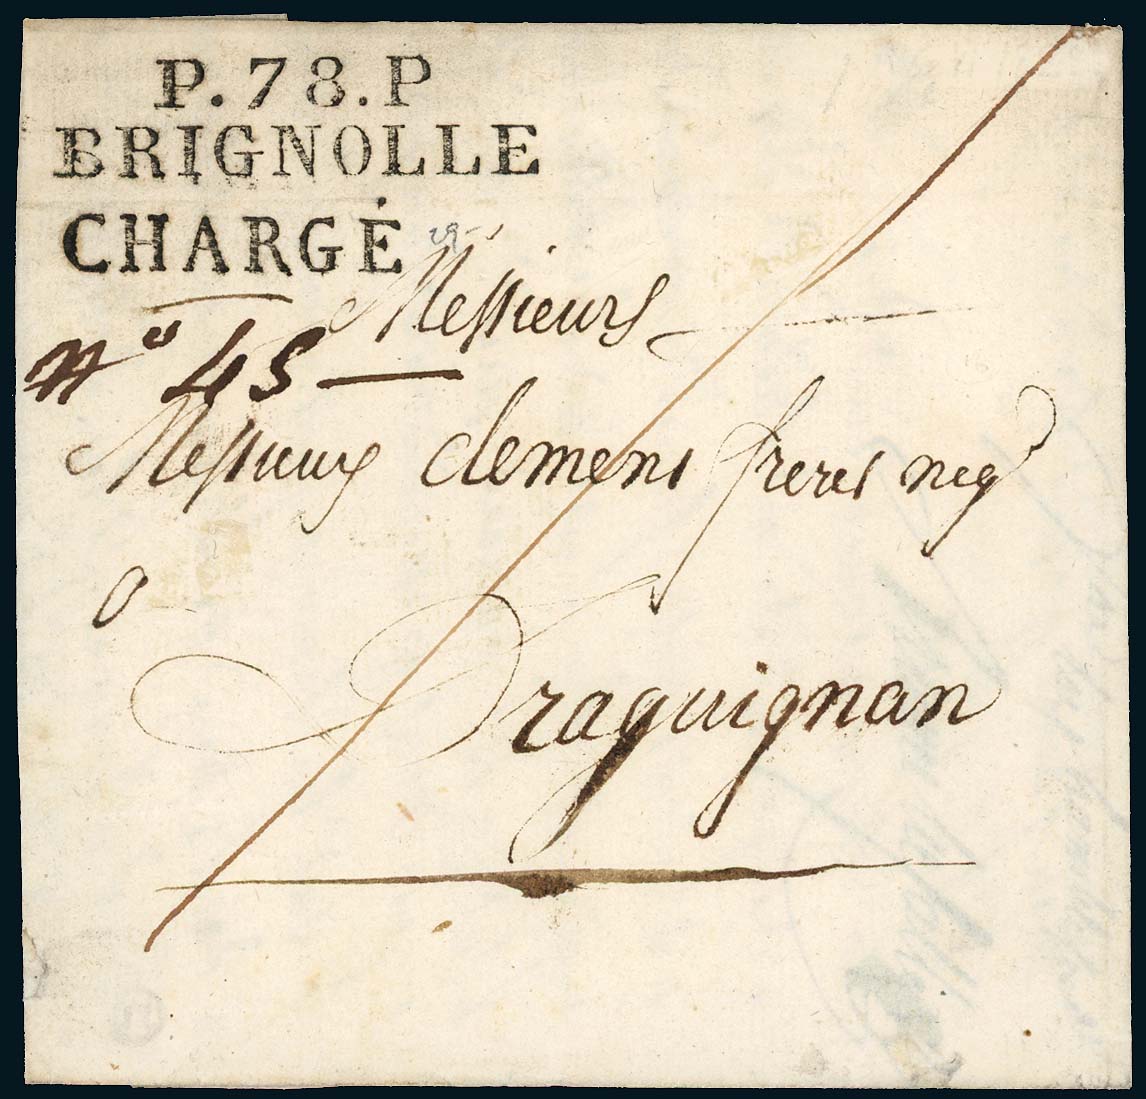 P.78.P
BRIGNOLLE
CHARGÉ
29-
Messieurs
N° 45
Messieurs Clemens freres neg^t
a
Draguignan